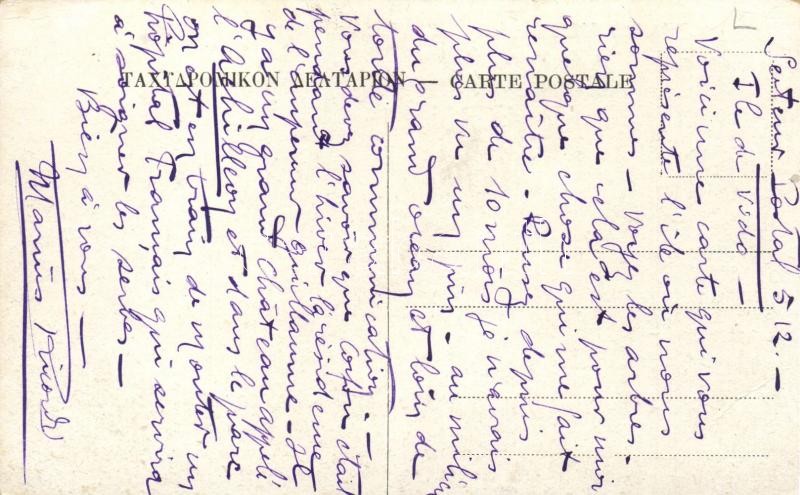 ΤΑΧΥΔΡΟΜΙΚΟΝ ΔΕΛΤΑΡΙΟΝ — CARTE POSTALE
Secteur Postal 512. —
Ile de Vido —
Voici une carte qui vous
représente l'île où nous
sommes — Voyez les arbres.
rien que cela est pour moi
quelque chose qui me fait
renaître. Pensez depuis
plus de 10 mois je n'avais
plus vu un pin. au milieu
du grand océan et loin de
toute communication —
Vous devez savoir que Corfou était
pendant l'hiver la résidence
de l'empereur Guillaume. Il
y a un grand château appelé
l'Achilleon et dans le parc
on est en train de monter un
hôpital Français qui servira
à soigner les serbes —
Bien à vous —
Marius